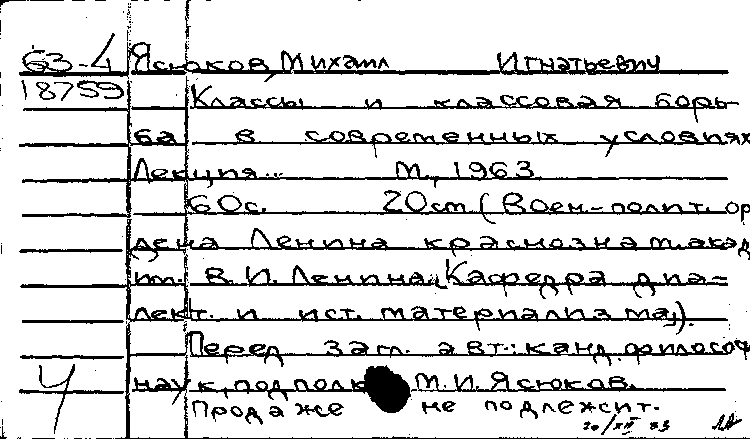 63-4 Ясюков, Михаил Игнатьевич
18759 Классы и классовая борь-
ба в современных условиях
Лекция... М., 1963.
60с. 20cm. (Воен.-полит. ор
дена Ленина краснознам. акад
им. В.И. Ленина. Кафедра диа-
лект. и ист. материализма).
Перед загл. авт.: канд. философ
наук, подполк М.И. Ясюков.
Продаже не подлежит.
20/XII 83